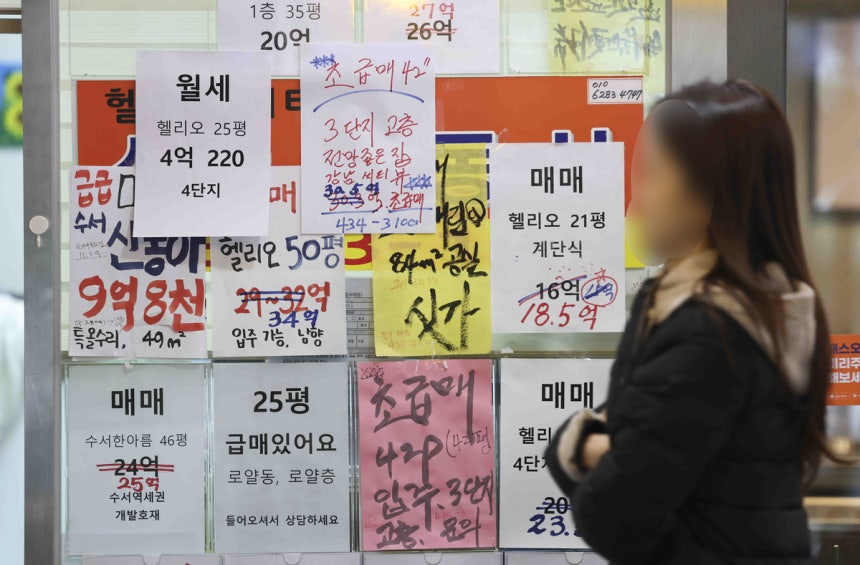 1층 35평
20억
27억
26억
010
6283 4747
월세
헬리오 25평
4억 220
4단지
초급매 42"
3단지 고층
전망좋은 집
강남 씨티뷰
30.5억
초급매
434-3100
급급
수서
9억 8천
특올수리, 49m²
매
헬리오 50평
29~32억
34억
입주 가능, 남향
84m² 공실
싯가
매매
헬리오 21평
계단식
16억
18.5억
매매
수서한아름 46평
24억
25억
수서역세권
개발호재
25평
급매있어요
로얄동, 로얄층
들어오셔서 상담하세요
초급매
42P (42평
입주. 3단지
고층. 문의
매매
헬리
4단지
20
23.